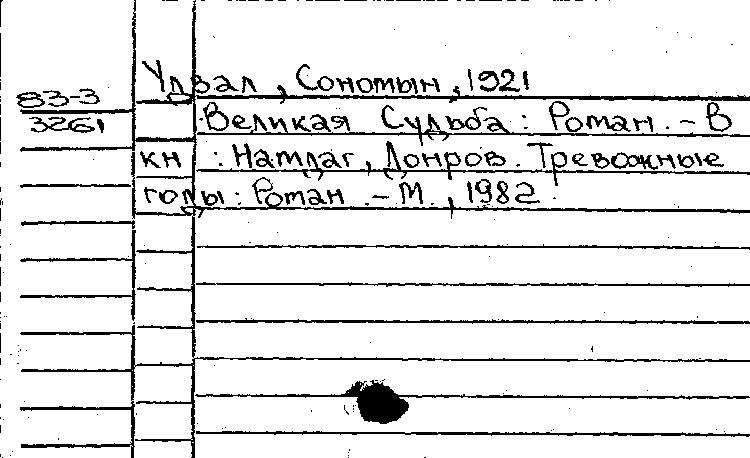 Удвал, Сономын, 1921
83-3
3261
Великая Судьба: Роман. - В
кн : Намдаг, Донров. Тревожные
годы: Роман. - М., 1982.